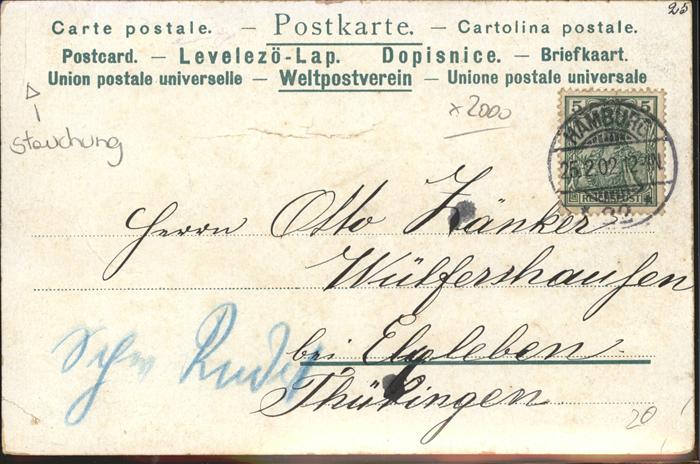 25
Carte postale. — Postkarte. — Cartolina postale.
Postcard. — Levelezö-Lap. Dopisnice. — Briefkaart.
Union postale universelle — Weltpostverein — Unione postale universale
x 2000
Stauchung
5 5
HAMBURG
25.2.02.12-1N.
REICHSPOST
Herrn Otto Zänker
Wülfershausen
bei Elxleben
Thüringen.
20